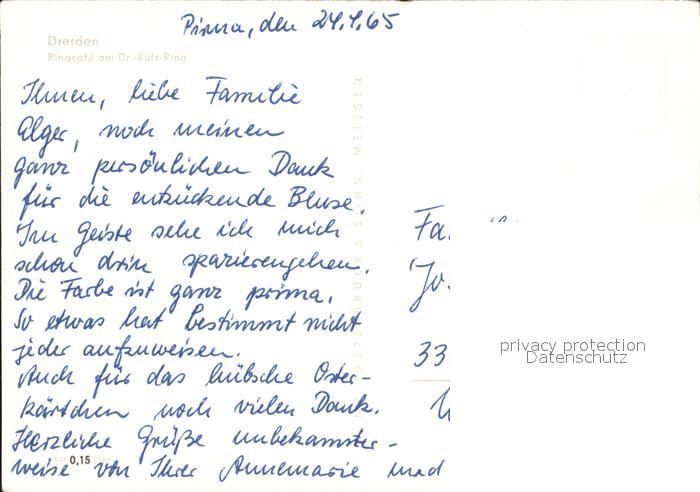 Pirna, den 24.4.65
Dresden
Ringcafé am Dr.-Külz-Ring
Ihnen, liebe Familie
Elger, noch meinen
ganz persönlichen Dank
für die entzückende Bluse.
Im Geiste sehe ich mich
schon drin spazierengehen.
Die Farbe ist ganz prima.
So etwas hat bestimmt nicht
jeder aufzuweisen.
Auch für das hübsche Oster-
kärtchen noch vielen Dank.
Herzliche Grüße unbekannter-
weise von Ihrer Annemarie und
0,15
& SOHN, MEISSEN
Fa.
Jo.
33
privacy protection
Datenschutz